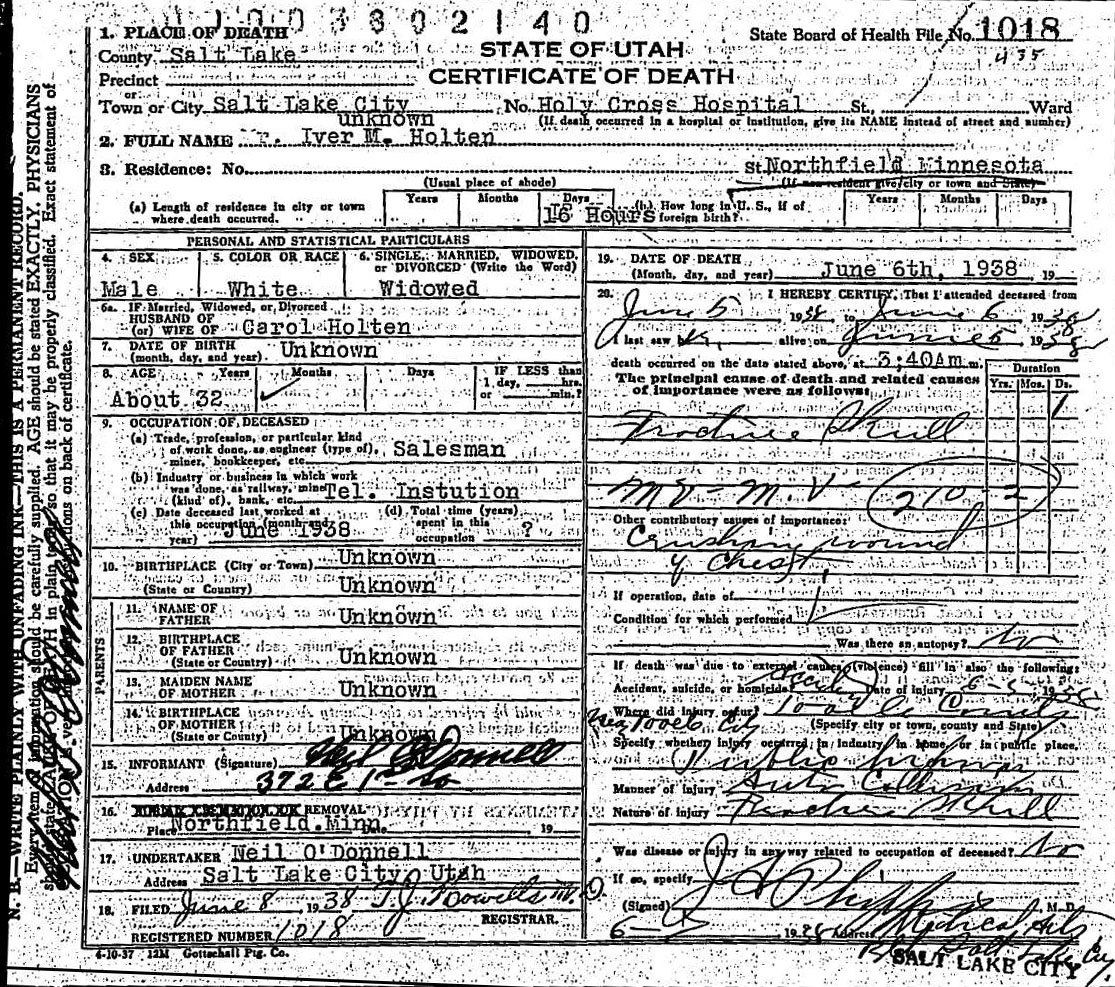 U 0 0 3 8 0 2 1 4 0
1. PLACE OF DEATH
State Board of Health File No. 1018
County Salt Lake
STATE OF UTAH
435
Precinct
CERTIFICATE OF DEATH
or
Town or City Salt Lake City No. Holy Cross Hospital St., Ward
unknown (If death occurred in a hospital or institution, give its NAME instead of street and number)
2. FULL NAME Iver M. Holten
3. Residence: No. St. Northfield Minnesota
(Usual place of abode) (If non-resident give city or town and State)
(a) Length of residence in city or town where death occurred. Years Months Days 16 Hours (b) How long in U. S., if of foreign birth? Years Months Days
PERSONAL AND STATISTICAL PARTICULARS
4. SEX 5. COLOR OR RACE 6. SINGLE, MARRIED, WIDOWED, or DIVORCED (Write the Word)
Male White Widowed
6a. IF Married, Widowed, or Divorced
HUSBAND OF
(or) WIFE OF Carol Holten
7. DATE OF BIRTH
(month, day, and year) Unknown
8. AGE Years Months Days IF LESS than
1 day, hrs.
or min.?
About 32
9. OCCUPATION OF DECEASED
(a) Trade, profession, or particular kind
of work done, as engineer (type of), Salesman
miner, bookkeeper, etc.
(b) Industry or business in which work
was done, as railway, mine
(kind of), bank, etc. Tel. Instution
(c) Date deceased last worked at
this occupation (month and
year) June 1938
(d) Total time (years)
spent in this
occupation ?
10. BIRTHPLACE (City or Town) Unknown
(State or Country) Unknown
PARENTS
11. NAME OF
FATHER Unknown
12. BIRTHPLACE
OF FATHER
(State or Country) Unknown
13. MAIDEN NAME
OF MOTHER Unknown
14. BIRTHPLACE
OF MOTHER
(State or Country) Unknown
15. INFORMANT (Signature) Neil O'Donnell
Address 372 E 1st So
16. REMOVAL
Place Northfield. Minn. 19
17. UNDERTAKER Neil O'Donnell
Address Salt Lake City, Utah
18. FILED June 8 1938 T.J. Howells M.D.
REGISTRAR.
REGISTERED NUMBER 1018
4-10-37 12M Gottschall Ptg. Co.
19. DATE OF DEATH
(Month, day, and year) June 6th, 1938 19
20. I HEREBY CERTIFY, That I attended deceased from
June 5 1938 to June 6 1938
I last saw alive on June 5 1938
death occurred on the date stated above, at 3;40Am m.
Duration
The principal cause of death and related causes
of importance were as follows: Yrs. Mos. Ds.
1
Fracture Skull
M V - M. V 210-2
Other contributory causes of importance:
Crushing wound
of Chest
If operation, date of
Condition for which performed
Was there an autopsy? No
If death was due to external causes (violence) fill in also the following:
Accident, suicide, or homicide? Accident Date of injury 6-5 1938
Where did injury occur? Tooele County
Near Tooele City (Specify city or town, county and State)
Specify whether injury occurred in industry, in home, or in public place.
Public
Manner of injury Auto Collision
Nature of injury Fracture Skull
Was disease or injury in any way related to occupation of deceased? No
If so, specify
(Signed) M. D.
6- 1938 Address Medical Arts
Bldg Salt Lake City
SALT LAKE CITY
N. B.—WRITE PLAINLY WITH UNFADING INK—THIS IS A PERMANENT RECORD.
Every item of information should be carefully supplied. AGE should be stated EXACTLY. PHYSICIANS
should state CAUSE OF DEATH in plain terms, so that it may be properly classified. Exact statement of
OCCUPATION is very important. See instructions on back of certificate.